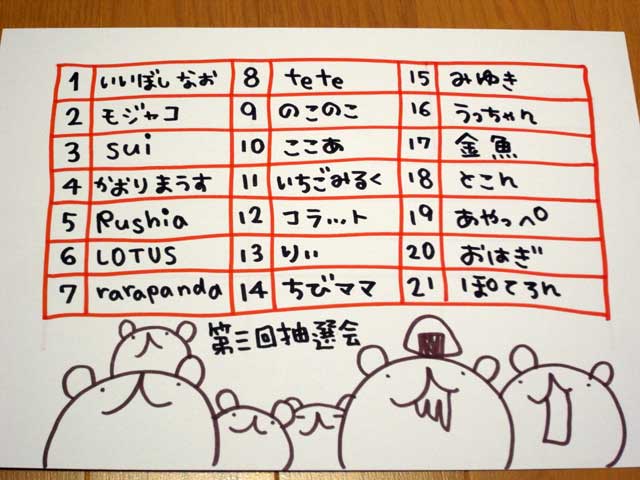 1 いいぼしなお 8 tete 15 みゆき
2 モジャコ 9 のこのこ 16 うっちゃん
3 sui 10 ここあ 17 金魚
4 かおりまうす 11 いちごみるく 18 とこん
5 Rushia 12 コラット 19 あやっぺ
6 LOTUS 13 りぃ 20 おはぎ
7 rarapanda 14 ちびママ 21 ぽてろん
第三回抽選会